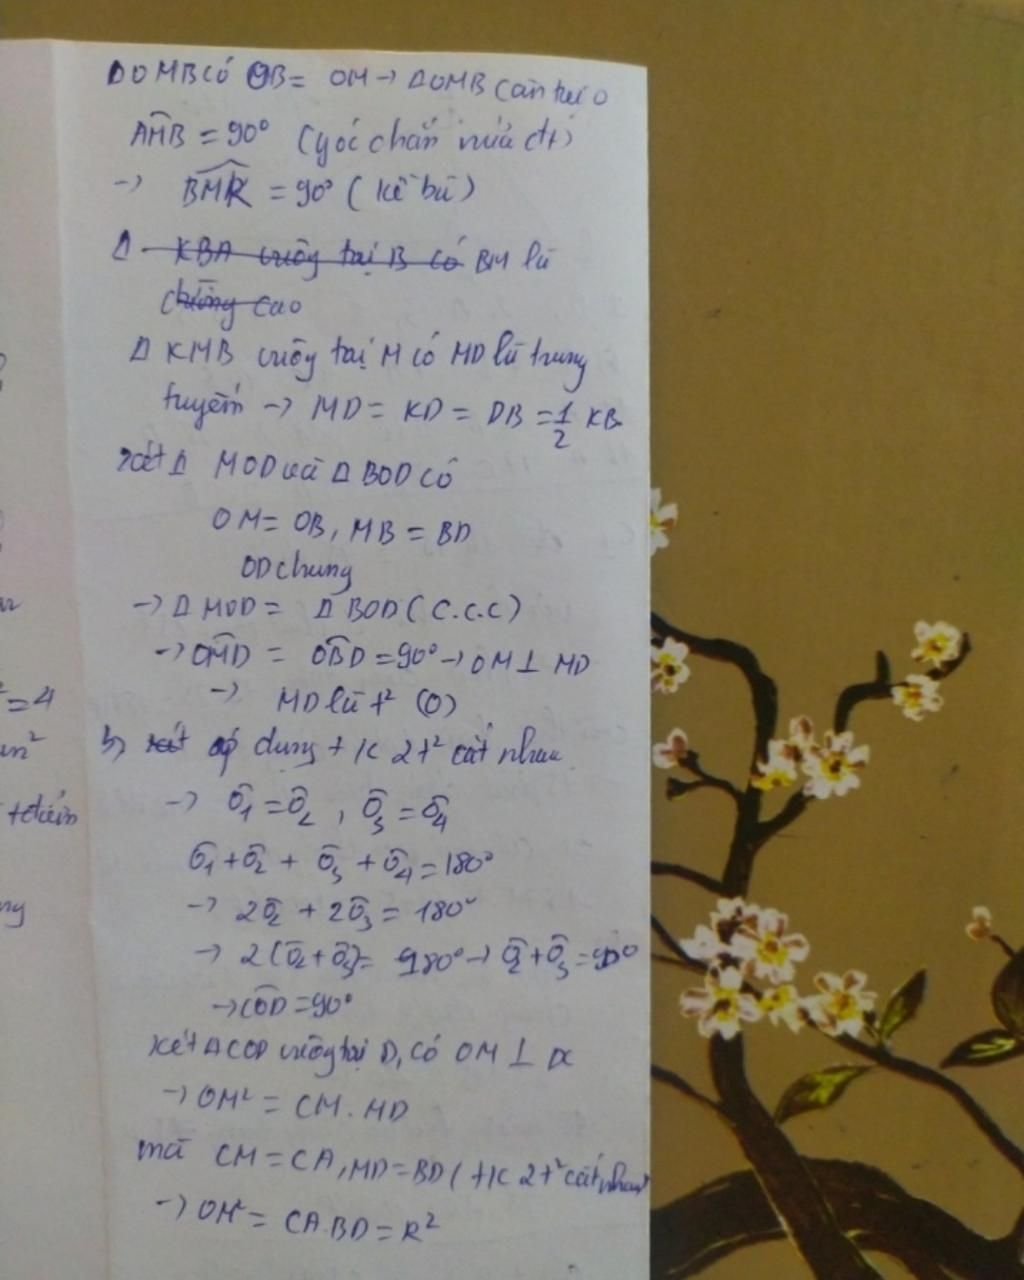 ΔOMB có OB = OM → ΔOMB cân tại O
AMB = 90° (góc chắn nửa đt)
→ BMK = 90° (kề bù)
Δ KBA vuông tại B có BM là
đường cao
Δ KMB vuông tại M có MD là trung
tuyến → MD = KD = DB = 1/2 KB
xét Δ MOD và Δ BOD có
OM = OB, MB = BD
OD chung
→ Δ MOD = Δ BOD (c.c.c)
→ OMD = OBD = 90° → OM ⊥ MD
→ MD là t² (O)
b, áp dụng t/c 2t² cắt nhau
→ O1 = O2, O3 = O4
O1 + O2 + O3 + O4 = 180°
→ 2O2 + 2O3 = 180°
→ 2(O2 + O3) = 180° → O2 + O3 = 90°
→ COD = 90°
xét ΔCOD vuông tại D, có OM ⊥ DC
→ OM² = CM . MD
mà CM = CA, MD = BD (t/c 2t² cắt nhau)
→ OM² = CA.BD = R²
²=4